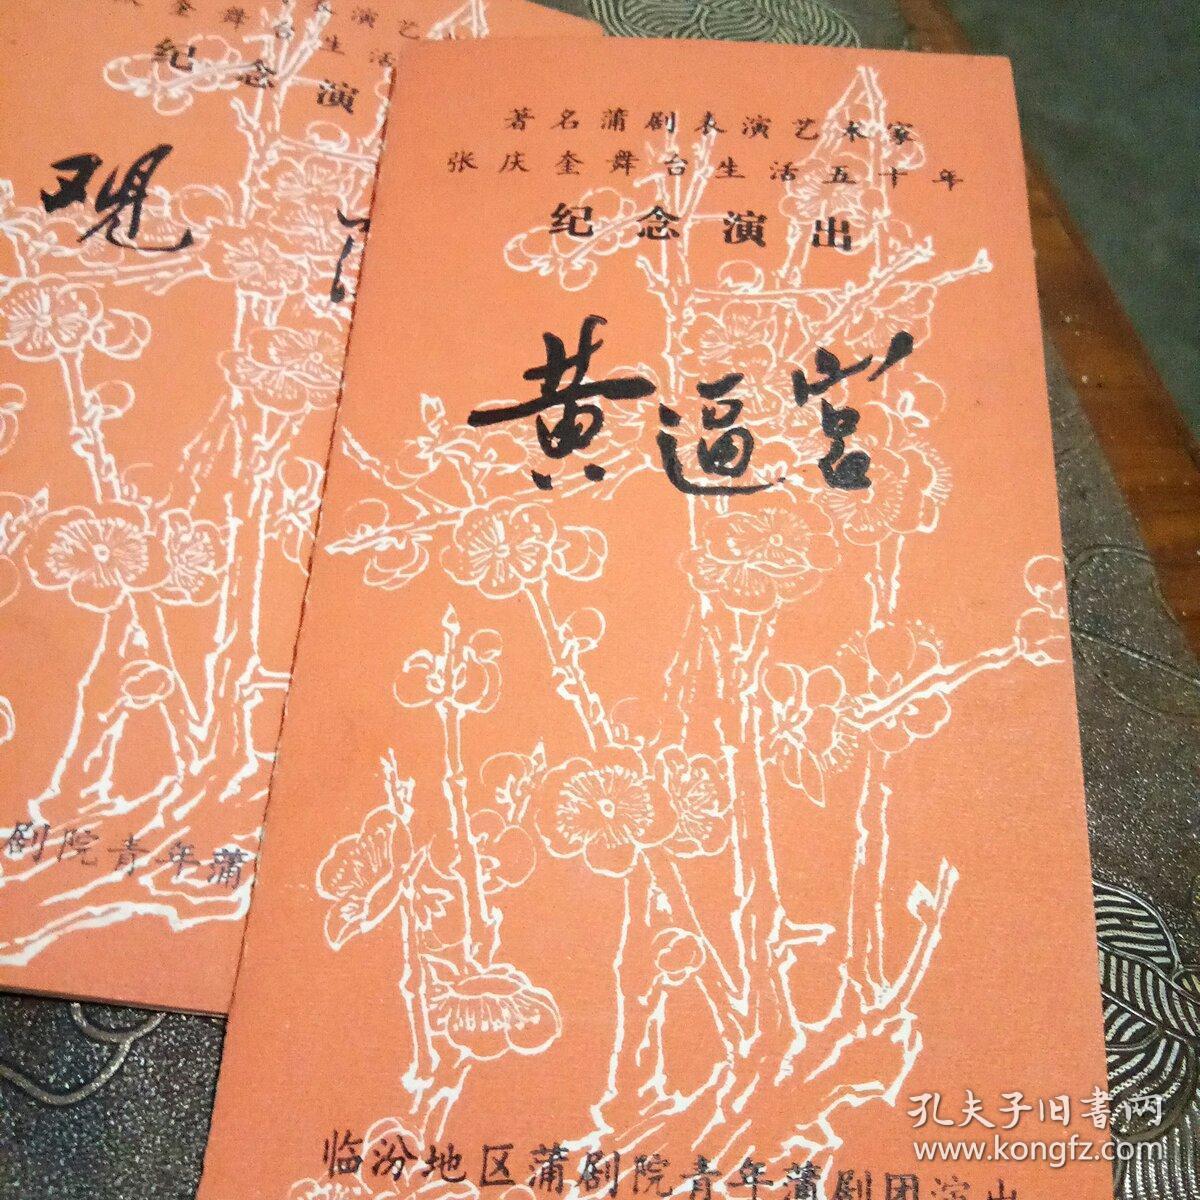 著名蒲剧表演艺术家
张庆奎舞台生活五十年
纪念演出
黄逼宫
临汾地区蒲剧院青年蒲剧团演出
奎舞台生活
纪念演
观
剧院青年蒲
孔夫子旧书网
www.kongfz.com